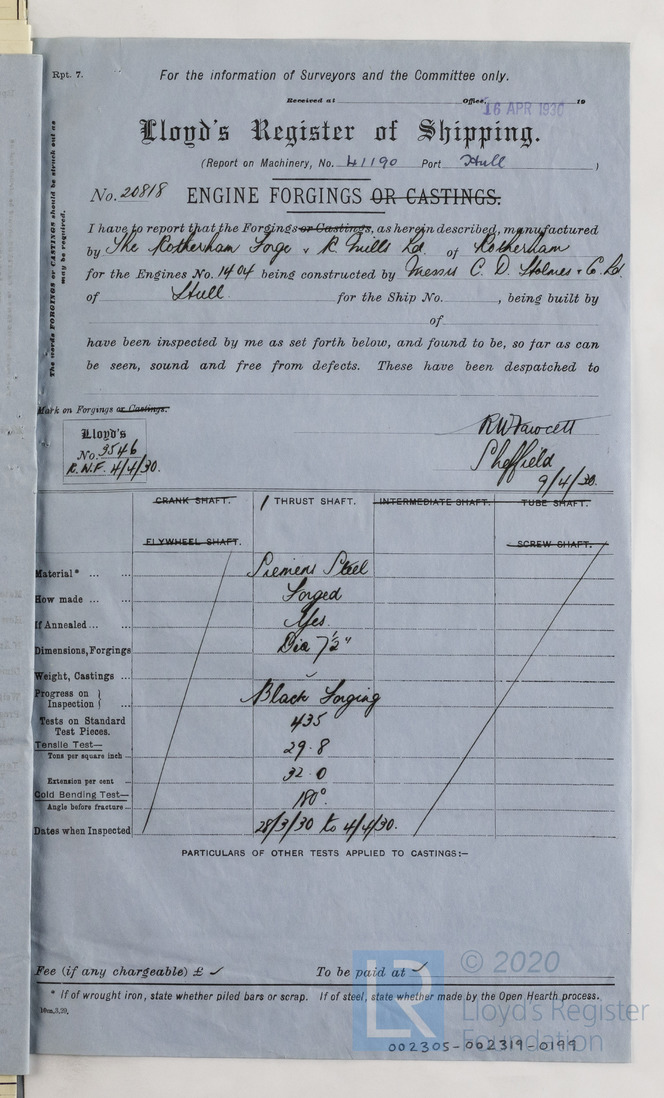 Rpt. 7.
For the information of Surveyors and the Committee only.
Received at Office, 16 APR 1930 19
Lloyd's Register of Shipping.
(Report on Machinery, No. 41190 Port Hull )
No. 20818 ENGINE FORGINGS OR CASTINGS.
I have to report that the Forgings or Castings, as herein described, manufactured
by The Rotherham Forge & R. Mills Ld. of Rotherham
for the Engines No. 1404 being constructed by Messrs C. D. Holmes & Co. Ld.
of Hull for the Ship No. , being built by
of
have been inspected by me as set forth below, and found to be, so far as can
be seen, sound and free from defects. These have been despatched to
The words FORGINGS or CASTINGS should be struck out as
may be required.
Mark on Forgings or Castings.
Lloyd's
No. 9546
R.W.F. 4/4/30.
RW Fawcett
Sheffield
9/4/30.
CRANK SHAFT. 1 THRUST SHAFT. INTERMEDIATE SHAFT. TUBE SHAFT.
FLYWHEEL SHAFT. SCREW SHAFT.
Material* ... ... Siemens Steel
How made ... ... Forged
If Annealed ... ... Yes.
Dimensions, Forgings Dia 7½"
Weight, Castings ...
Progress on Inspection } ... Black Forging
Tests on Standard Test Pieces. 435
Tensile Test—
Tons per square inch 29.8
Extension per cent 32.0
Cold Bending Test—
Angle before fracture 180°.
Dates when Inspected 28/3/30 to 4/4/30.
PARTICULARS OF OTHER TESTS APPLIED TO CASTINGS:—
Fee (if any chargeable) £ ✓ To be paid at ✓
* If of wrought iron, state whether piled bars or scrap. If of steel, state whether made by the Open Hearth process.
10m,3,29.
LR
© 2020
Lloyd's Register
Foundation
002305-002319-0199